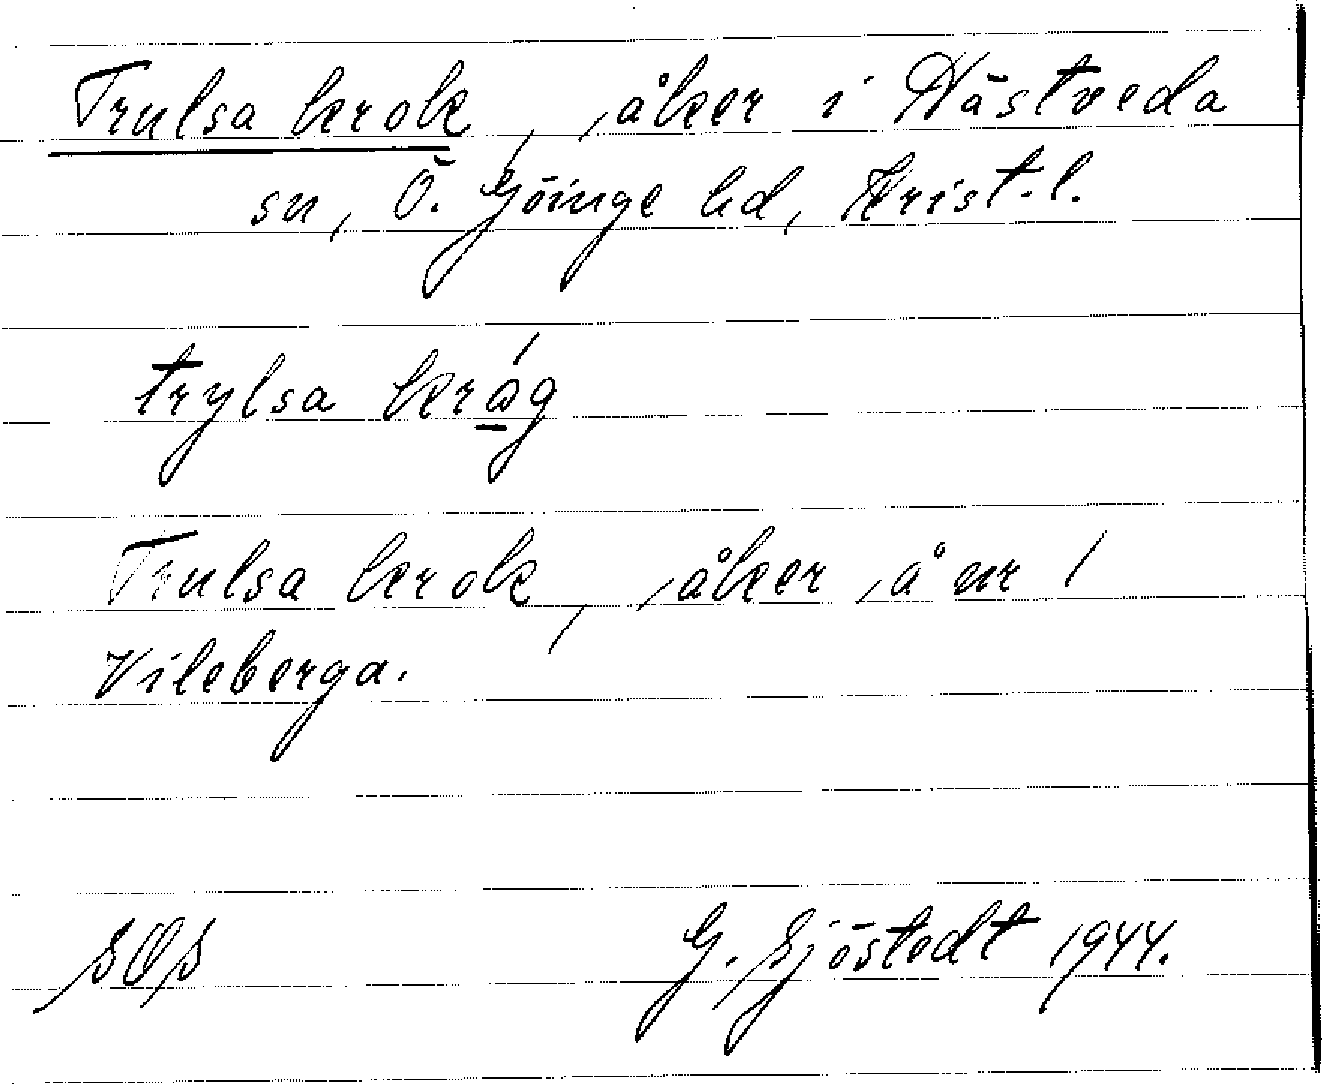 Trulsa krok, åker i Hästveda
sn, Ö. Göinge hd, Krist. l.
trylsa kråg
Trulsa krok, åker å nr 1
Vileberga.
SOS G. Sjöstedt 1944.